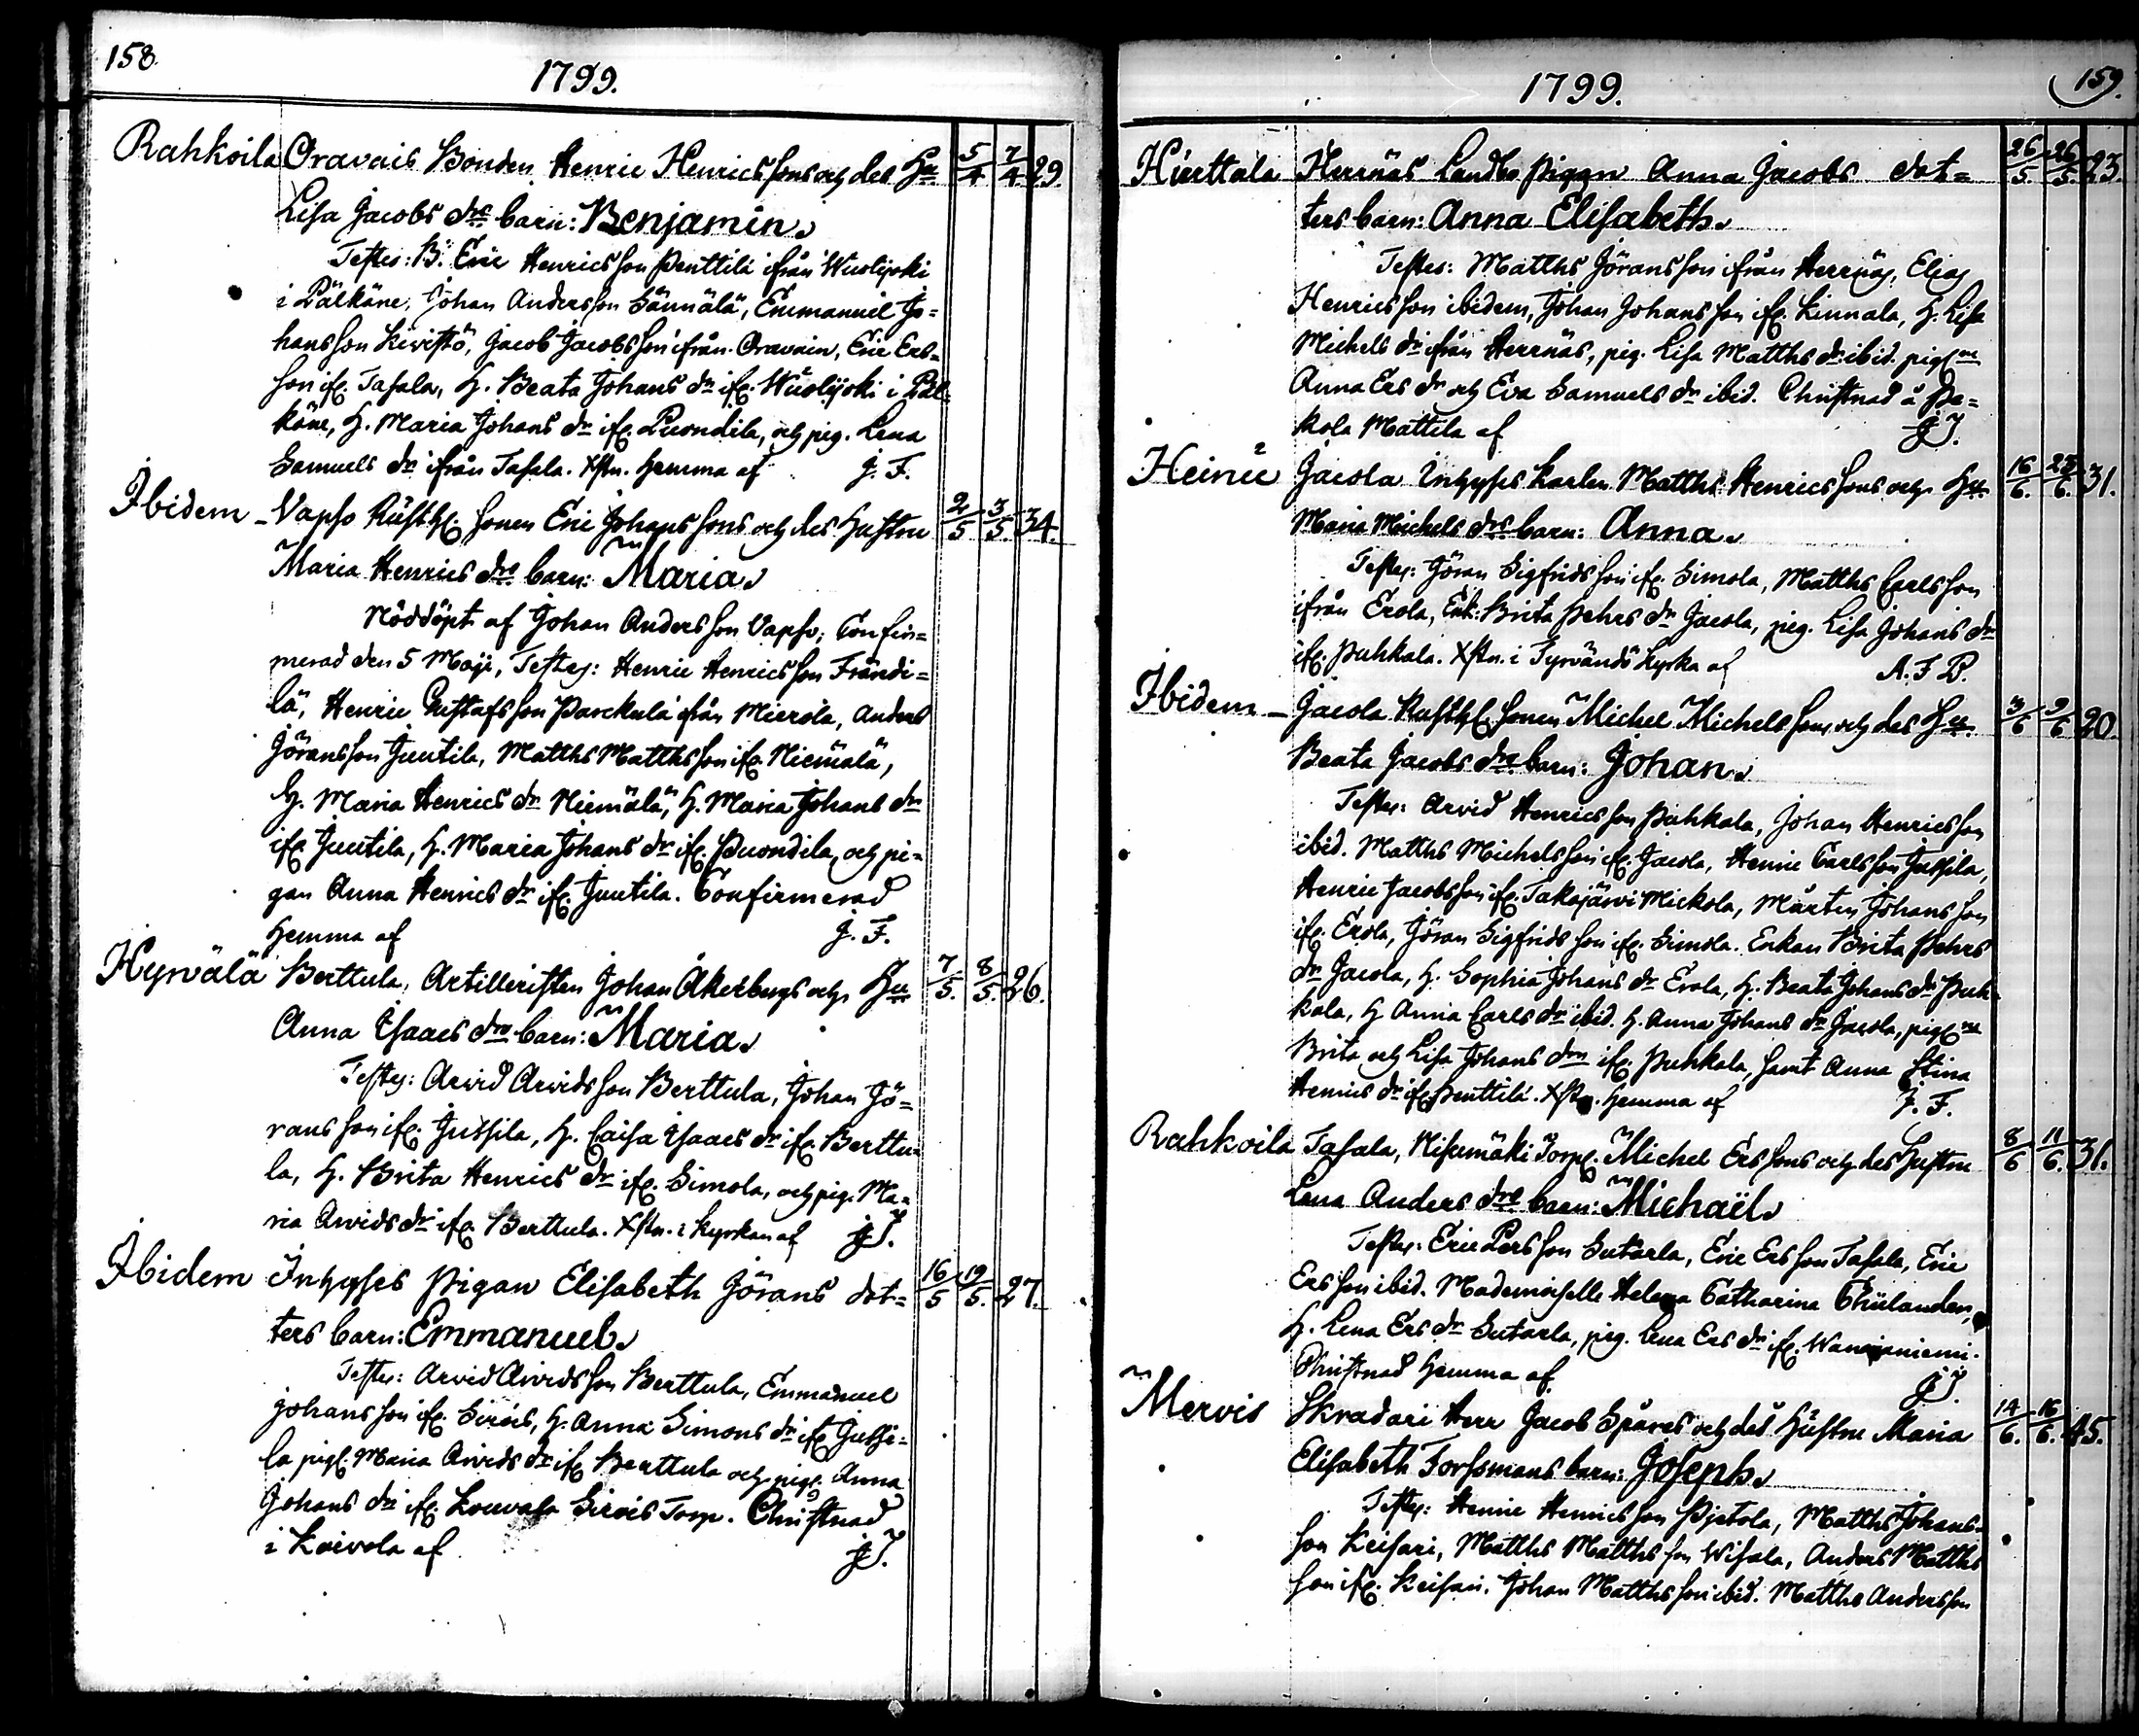 158.
1799.
Rahkoila Oravais Bonden Henric Henricssons och des Hu 5/4 7/4 29.
Lisa Jacobs drs barn: Benjamin.
Testes: B. Eric Henricsson Penttilä ifrån Wuolijoki
i Pälkäne, Johan Andersson Sännälä, Emmanuel Jo=
hansson Kivistö, Jacob Jacobsson ifrån Oravain, Eric Ers=
son ifr. Tasala, H. Beata Johans dr ifr. Wuolijoki i Päl=
käne, H. Maria Johans dr ifr. Puondila, och pig. Lena
Samuels dr ifrån Tasala. Xstn. hemma af J. F.
Ibidem Vapso Rusth. sonen Eric Johanssons och des hustru 2/5 3/5 34.
Maria Henrics drs barn: Maria.
Nöddöpt af Johan Andersson Vapso; Confir=
merad den 5 Maji, Testes: Henric Henricsson Frändi=
lä, Henric Gustafsson Parckula ifrån Mierola, Anders
Göransson Juutila, Matths Matthsson ifr. Niemälä,
H. Maria Henrics dr Niemälä, H. Maria Johans dr
ifr. Juutila, H. Maria Johans dr ifr. Puondila, och pi=
gan Anna Henrics dr ifr. Juutila. Confirmerad
hemma af J. F.
Hyrvälä Berttula, Artilleristen Johan Åkerbergs och Hu 7/5. 8/5. 26.
Anna Isaacs drs barn: Maria.
Testes: Arvid Arvidsson Berttula, Johan Jö=
ransson ifr. Jussila, H. Caisa Isaacs dr ifr. Berttu=
la, H. Brita Henrics dr ifr. Simola, och pig. Ma=
ria Arvids dr ifr. Berttula. Xstn. i Kyrkan af JJ.
Ibidem Inhyses Pigan Elisabeth Görans dot= 16/5 19/5. 27.
ters barn: Emmanuel.
Testes: Arvid Arvidsson Berttula, Emmanuel
Johansson ifr. Sirois, H. Anna Simons dr ifr. Jussi=
la pig. Maria Arvids dr ifr. Berttula och pig. Anna
Johans dr ifr. Louvasa Sirois Torp. Christnad
i Koivola af JJ.
159.
1799.
Hierttala Herrnäs Landbo Pigan Anna Jacobs dot= 26/5. 26/5. 23.
ters barn: Anna Elisabeth.
Testes: Matths Göransson ifrån Herrnäs, Elias
Henricsson ibidem, Johan Johansson ifr. Kinnala, H. Lisa
Michels dr ifrån Herrnäs, pig. Lisa Matths dr ibid. pig.
Anna Ers dr och Eva Samuels dr ibid. Christnad å Pe=
kola Mattila af JJ.
Heinie Jacola Inhyses karlen Matths Henricssons och Hu 16/6. 23/6. 31.
Maria Michels drs barn: Anna.
Testes: Göran Sigfridsson ifr. Simola, Matths Carlsson
ifrån Erola, Enk. Brita Pehrs dr Jacola, pig. Lisa Johans dr
ifr. Puhkala. Xstn. i Tyrvändö Kyrka af A. F. B.
Ibidem Jacola Rusth. sonen Michel Michelssons och des Hu. 3/6 9/6 20.
Beata Jacobs drs barn: Johan.
Testes: Arvid Henricsson Puhkala, Johan Henricsson
ibid. Matths Michelsson ifr. Jacola, Henric Carlsson Jussila,
Henric Jacobsson ifr. Takajärvi Mickola, Mårten Johansson
ifr. Erola, Göran Sigfridsson ifr. Simola. Enkan Brita Pehrs
dr Jacola, H. Sophia Johans dr Erola, H. Beata Johans dr Puh=
kala, H. Anna Carls dr ibid. H. Anna Johans dr Jacola, pig.
Brita och Lisa Johans drr ifr. Puhkala, samt Anna Stina
Henrics dr ifr. Penttilä. Xstn. hemma af J. F.
Rahkoila Tasala, Nisumäki Torp. Michel Erssons och des hustru 8/6 11/6. 31.
Lena Anders drs barn: Michaël.
Testes: Eric Persson Sutarla, Eric Ersson Tasala, Eric
Ersson ibid. Mademoiselle Helena Catharina Thülanden,
H. Lena Ers dr Sutarla, pig. Lena Ers dr ifr.
Christnad hemma af JJ.
Mervis Skradari Herr Jacob Spåres och des hustru Maria 14/6. 16/6. 45.
Elisabeth Forssmans barn: Joseph.
Testes: Henric Henricsson Pjetola, Matths Johans=
son Keisari, Matths Matthsson Wisala, Anders Matths
son ifr. Keisari, Johan Matthsson ibid. Matths Andersson